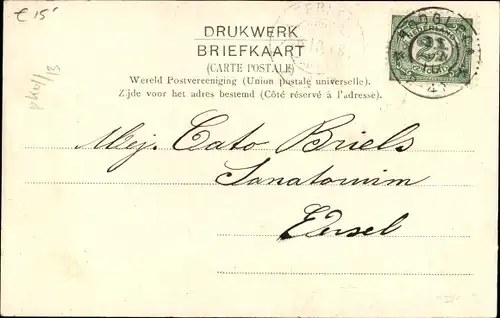 € 15
DRUKWERK
BRIEFKAART
(CARTE POSTALE)
Wereld Postvereeniging (Union postale universelle).
Zijde voor het adres bestemd (Côté réservé à l'adresse).
NEDERLAND
2½
CENT
Mej. Cato Briels
Sanatorium
Eersel